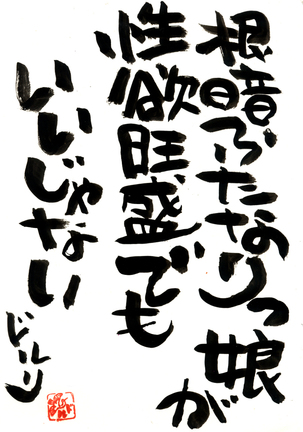 根暗ふたなりっ娘が
性欲旺盛でも
いいじゃない
どルリ